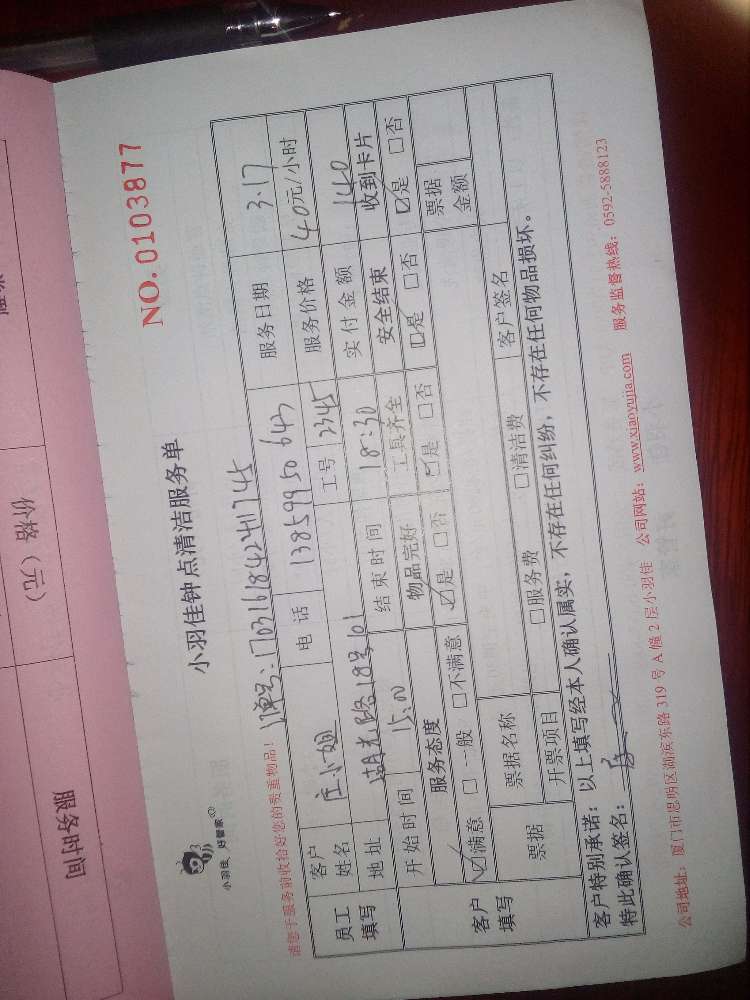 NO.0103877
小羽佳 好管家
小羽佳钟点清洁服务单
请您于服务前收拾好您的贵重物品!
订单号:1703161842241745
员工填写 客户姓名 庄小姐 电话 13859950643 服务日期 3.17
工号 2345 服务价格 40元/小时
地址 湖光路18号101 实付金额 140
开始时间 15:00 结束时间 18:30
客户填写 服务态度 物品完好 工具齐全 安全结束 收到卡片
☑满意 □一般 □不满意 ☑是 □否 ☑是 □否 ☑是 □否 ☑是 □否
票据 票据名称 票据金额
开票项目 □服务费 □清洁费 客户签名
客户特别承诺:以上填写经本人确认属实,不存在任何纠纷,不存在任何物品损坏。
特此确认签名:
公司地址:厦门市思明区湖滨东路319号A幢2层小羽佳 公司网站:www.xiaoyujia.com 服务监督热线:0592-5888123
价格(元)
服务时间